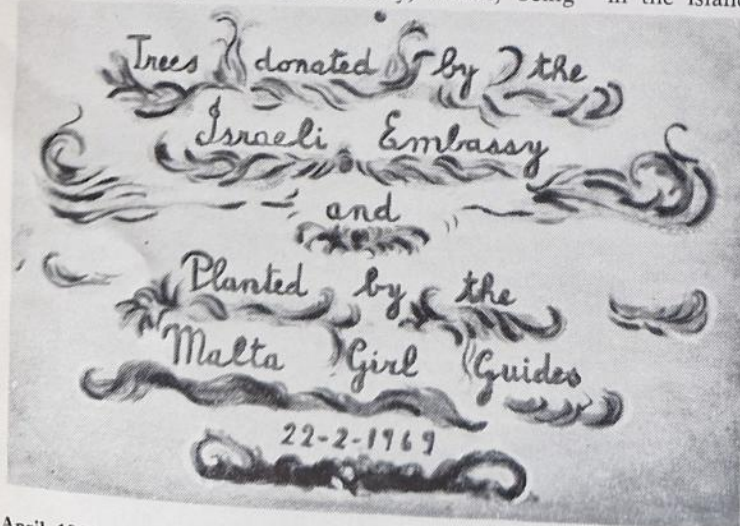 in the Island
Trees donated by the
Israeli Embassy
and
Planted by the
Malta Girl Guides
22-2-1969
April